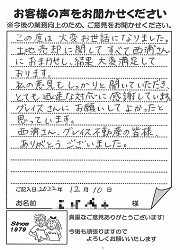 お客様の声をお聞かせください
※今後の業務向上のため、ご意見をお聞かせください。
この度は大変お世話になりました。
土地売却に関してすべて西浦さん
におまかせし、結果大変満足して
おります。
私の意見もしっかりと聞いていただき、
とても迅速な対応に感謝しています。
グレイスさんにお願いしてよかったと
思っています。
西浦さん、グレイス不動産の皆様
ありがとうございました。
ご記入日2022年12月10日
お名前
Since
1979
貴重なご意見ありがとうございます!
今後も頑張りますので
よろしくお願いいたします